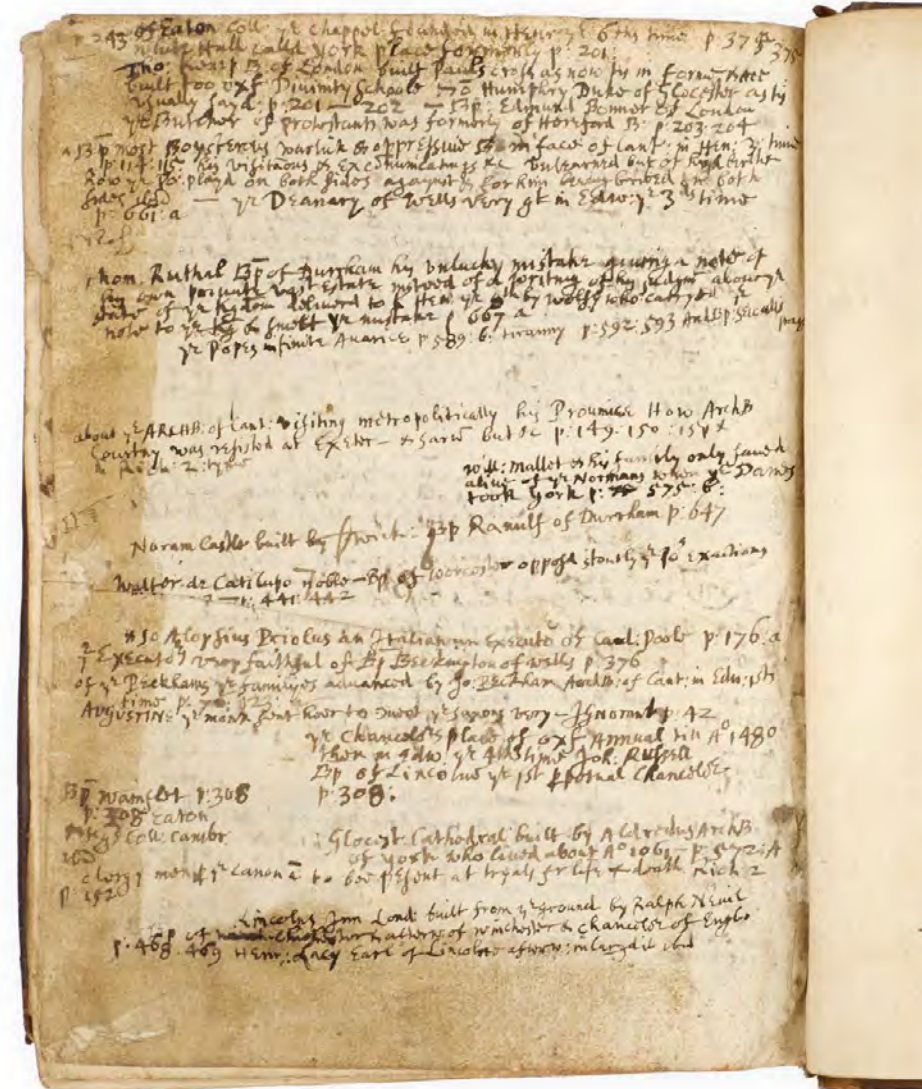 p 243 of Eaton Coll. yr chappel founded in Henry yr 6ths time p. 375 375
White Hall calld York place formerly p. 201.
Tho: Kemp B of London built Pauls cross as now tis in forme
built too oxf Divinity Schoole no Humphry Duke of Glocester as tis
usually sayd. p. 201 — 202 — Bp: Edmund Bonner of London
yr Butcher of protestants was formerly of Hereford B: p. 203. 204
a Bp most Boysterous warlick & oppressive Bonniface of Cant: in Hen: 3: time
p. 114. 115 his visitations & Excommunicatings &c unlearned but of high birthe
How yr Po: playd on both sides against & for him being bribed on both
sides ibid — yr Deanary of Wells very gt in Edw: yr 3ds time
p: 661: a
Thom. Ruthal Bp of Durrham his unlucky mistake giving a note of
his own private vast Estate insteed of a of his judgmt about yr
state of yr Kgdom delivered to K Hen yr 8th by Wolsy who carryed yr
note to yr Kg & smelt yr mistake p 667 a
yr Popes infinite Avarice p 589: b: tiranny p: 592: 593 And Bp:
about yr ARCHB: of Cant: visiting metropolitically his Province How ArchB
Courtny was resisted at Exeter — & Sarum but &c p: 149. 150: 151 &
in Rich: 2: time
Will: Mallet & his family only saved
alive of yr Normans when yr Danes
took York p: 575: b:
Noram Castle built by Bp Ranulf of Durrham p: 647
Walter de Catilupo noble Bp of Worcester opposd stoutly yr Po's Exactions
p: 441: 442
*so Aloysius Priolus an Italian an Executor of Card: Poole p: 176. a
2 Executors very faithful of Bp Beckington of Wells p 376
of yr Peckhams yr familyes advanced by Jo: Peckham ArchB: of Cant: in Edw: 1sts
time p.
AUGUSTINE yr monk sent heer to meet yr Saxons very — Ignorant p: 42
yr Chancelers place of oxf Annual till Ao 1480
then in Edw: yr 4ths time Joh: Russell
Bp of Lincolne yr 1st perpetual Chanceler
p: 308:
Bp Wainflet p: 308
p: 308 Eaton
Kings Coll: Cambr
ibid
Glocest. Cathedral built by Aldredus ArchB
of York who lived about Ao 1061 — p: 572: A
Clergy men yr canon to bee present at tryals for life & death Rich: 2
p 152
Lincolns Inn Lond: built from yr ground by Ralph Nevil
Bp of Chichester & afterw: of Winchester & Chanceler of Engld
p: 468: 469 Henr: Lacy Earl of Lincolne afterw: inlarged it ibid